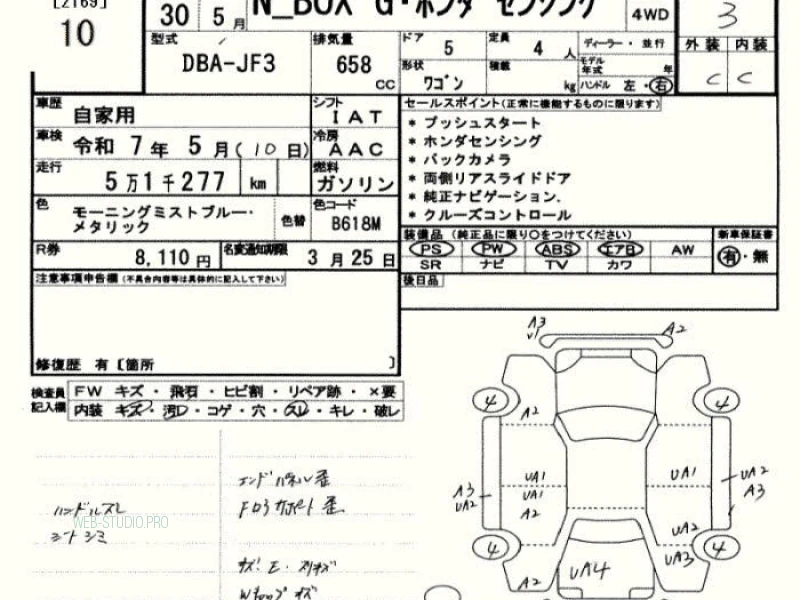 [2169]
10
30 5 月
N_BOX G・ホンダ センシング
4WD
3
型式
DBA-JF3
排気量
658
CC
ドア
5
定員
4 人
ディーラー・並行
形状
ワゴン
積載
kg
モデル
年式
年
ハンドル 左・右
外装 内装
C C
車歴
自家用
シフト
I A T
車検
令和 7 年 5 月(10 日)
冷房
A A C
走行
5 万 1 千 277 km
燃料
ガソリン
色
モーニングミストブルー・
メタリック
色替
色コード
B618M
R券
8,110 円
名変通知期限
3 月 25 日
セールスポイント(正常に機能するものに限ります)
* プッシュスタート
* ホンダセンシング
* バックカメラ
* 両側リアスライドドア
* 純正ナビゲーション.
* クルーズコントロール
装備品(純正品に限り○をつけてください)
新車保証書
PS PW ABS エアB AW
SR ナビ TV カワ
有・無
後日品
注意事項申告欄(不具合内容等は具体的に記入して下さい)
修復歴 有〔箇所 〕
検査員
記入欄
FW キズ・飛石・ヒビ割・リペア跡・×要
内装 キズ・汚レ・コゲ・穴・スレ・キレ・破レ
ハンドルスレ
シートシミ
WEB-STUDIO.PRO
エンドパネル歪
Fロアサポート歪
A3
A2
4
4
A2
UA1
UA1
A2
UA1
A3
UA2
UA2
A3
UA2
4
4
UA3
UA4
A2